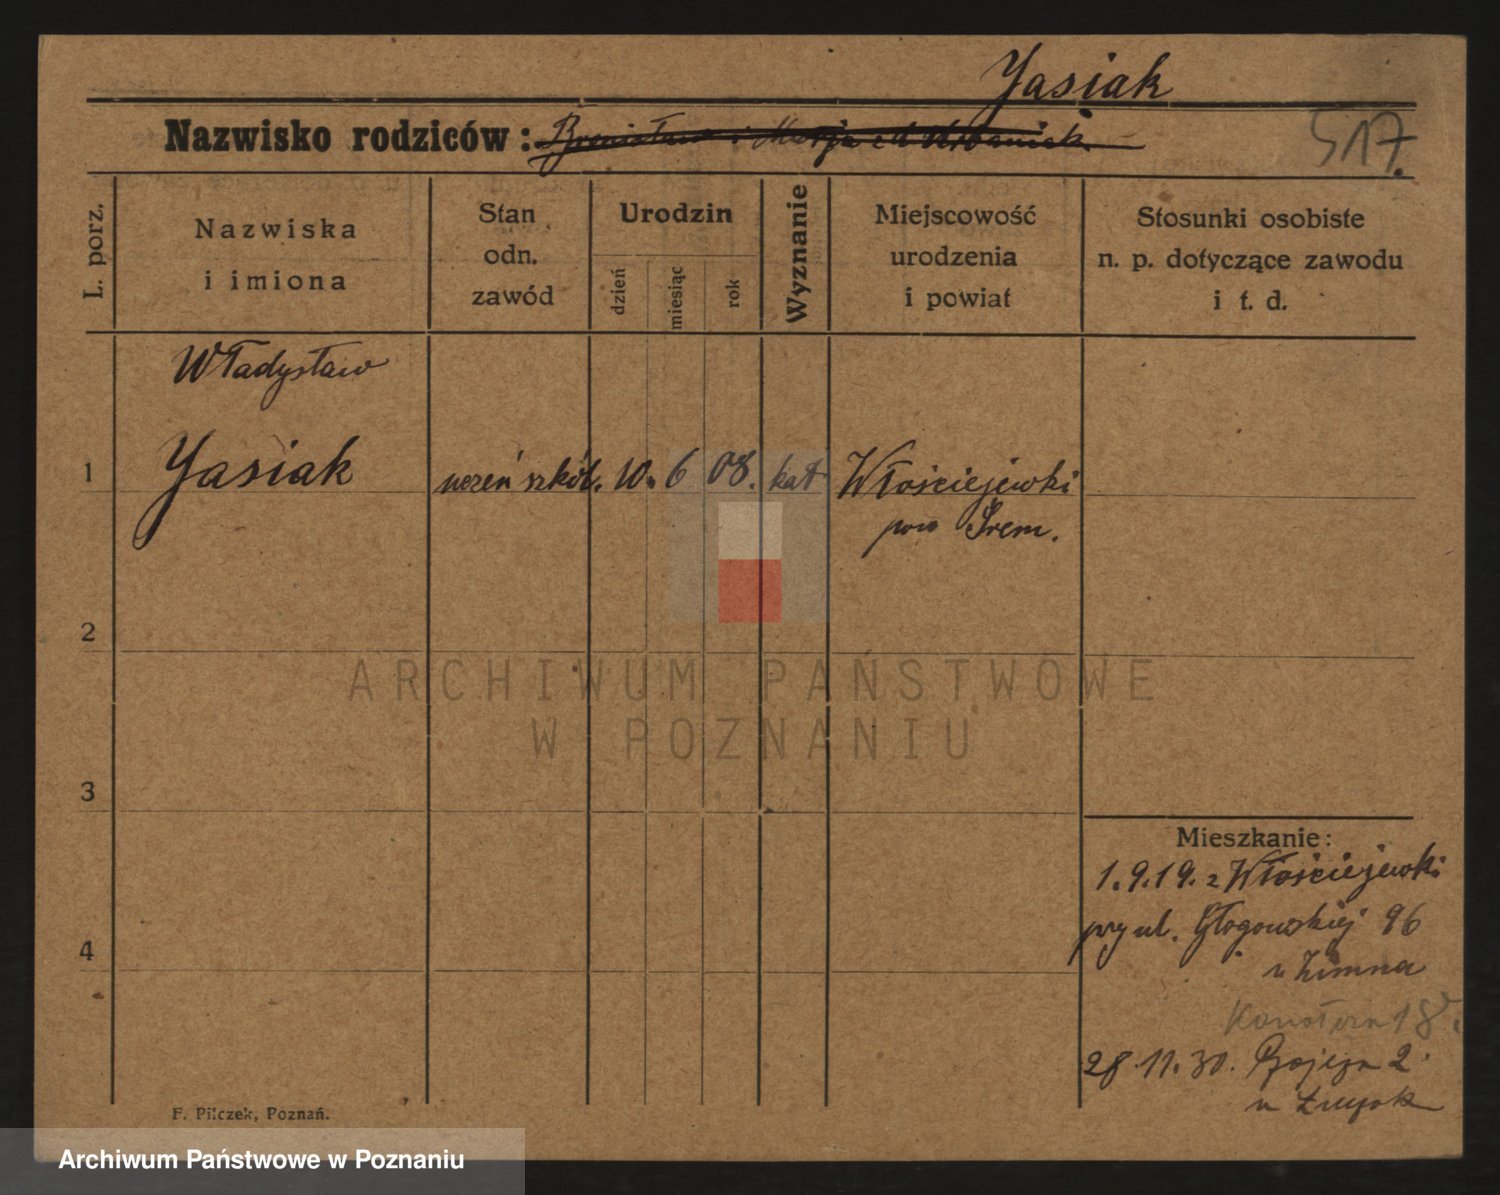 Jasiak
Nazwisko rodziców: Bronisław i Marja z d. Urbaniak
517.
L. porz.
Nazwiska
i imiona
Stan
odn.
zawód
Urodzin
dzień
miesiąc
rok
Wyznanie
Miejscowość
urodzenia
i powiat
Stosunki osobiste
n. p. dotyczące zawodu
i t. d.
Władysław
1 Jasiak uczeń szkół. 10. 6 08. kat Włościejewki
pow Śrem.
2
ARCHIWUM PAŃSTWOWE
W POZNANIU
3
Mieszkanie:
1.9.19. z Włościejewki
przy ul. Głogowskiej 96
4
u Zimna
18
28.11.30. 2
u
F. Pilczek, Poznań.
Archiwum Państwowe w Poznaniu